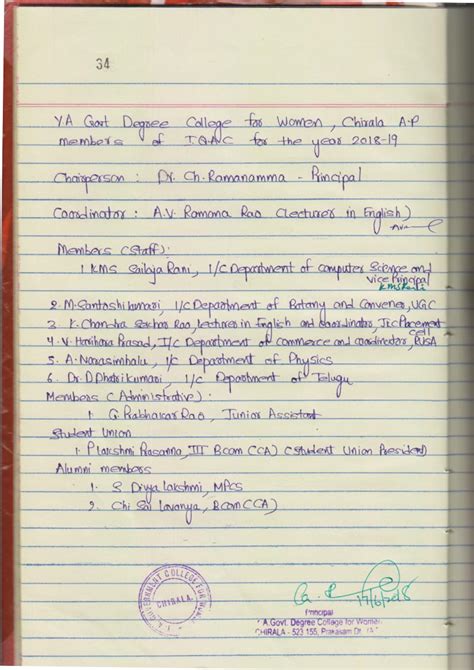 34
YA Govt Degree College for Women, Chirala A.P
members of IQAC for the year 2018-19
Chairperson : Dr. Ch. Ramanamma - Principal
Coordinator : A.V. Ramana Rao (Lecturer in English)
Members (Staff):
1 KMS Sailaja Rani, I/C Department of computer Science and
Vice Principal
2. M. Santoshi kumari, I/C Department of Botany and Convener, UGC
3. K. Chandra Sekhar Rao, Lecturer in English and coordinator, JKC Placement
cell
4. V. Harihara Prasad, I/C Department of commerce and coordinator, RUSA
5. A. Narasimhalu, I/c Department of Physics
6. Dr. D Dhatri kumari, I/c Department of Telugu
Members (Administrative):
1. G. Prabhakar Rao, Junior Assistant
Student Union
1. P Lakshmi Prasanna, III Bcom (CA) (Student Union President)
Alumni members
1. S Divya Lakshmi, MPCS
2. Chi Sai Lavanya, BCom (CA)
GOVERNMENT COLLEGE FOR
CHIRALA
Principal
Y.A.Govt. Degree College for Women
CHIRALA - 523 155, Prakasam Dt.